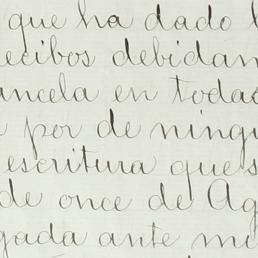 que ha dado l
ecibos debidan
ancela en todas
por de ningu
escritura que s
de once de Ag
gada ante mi